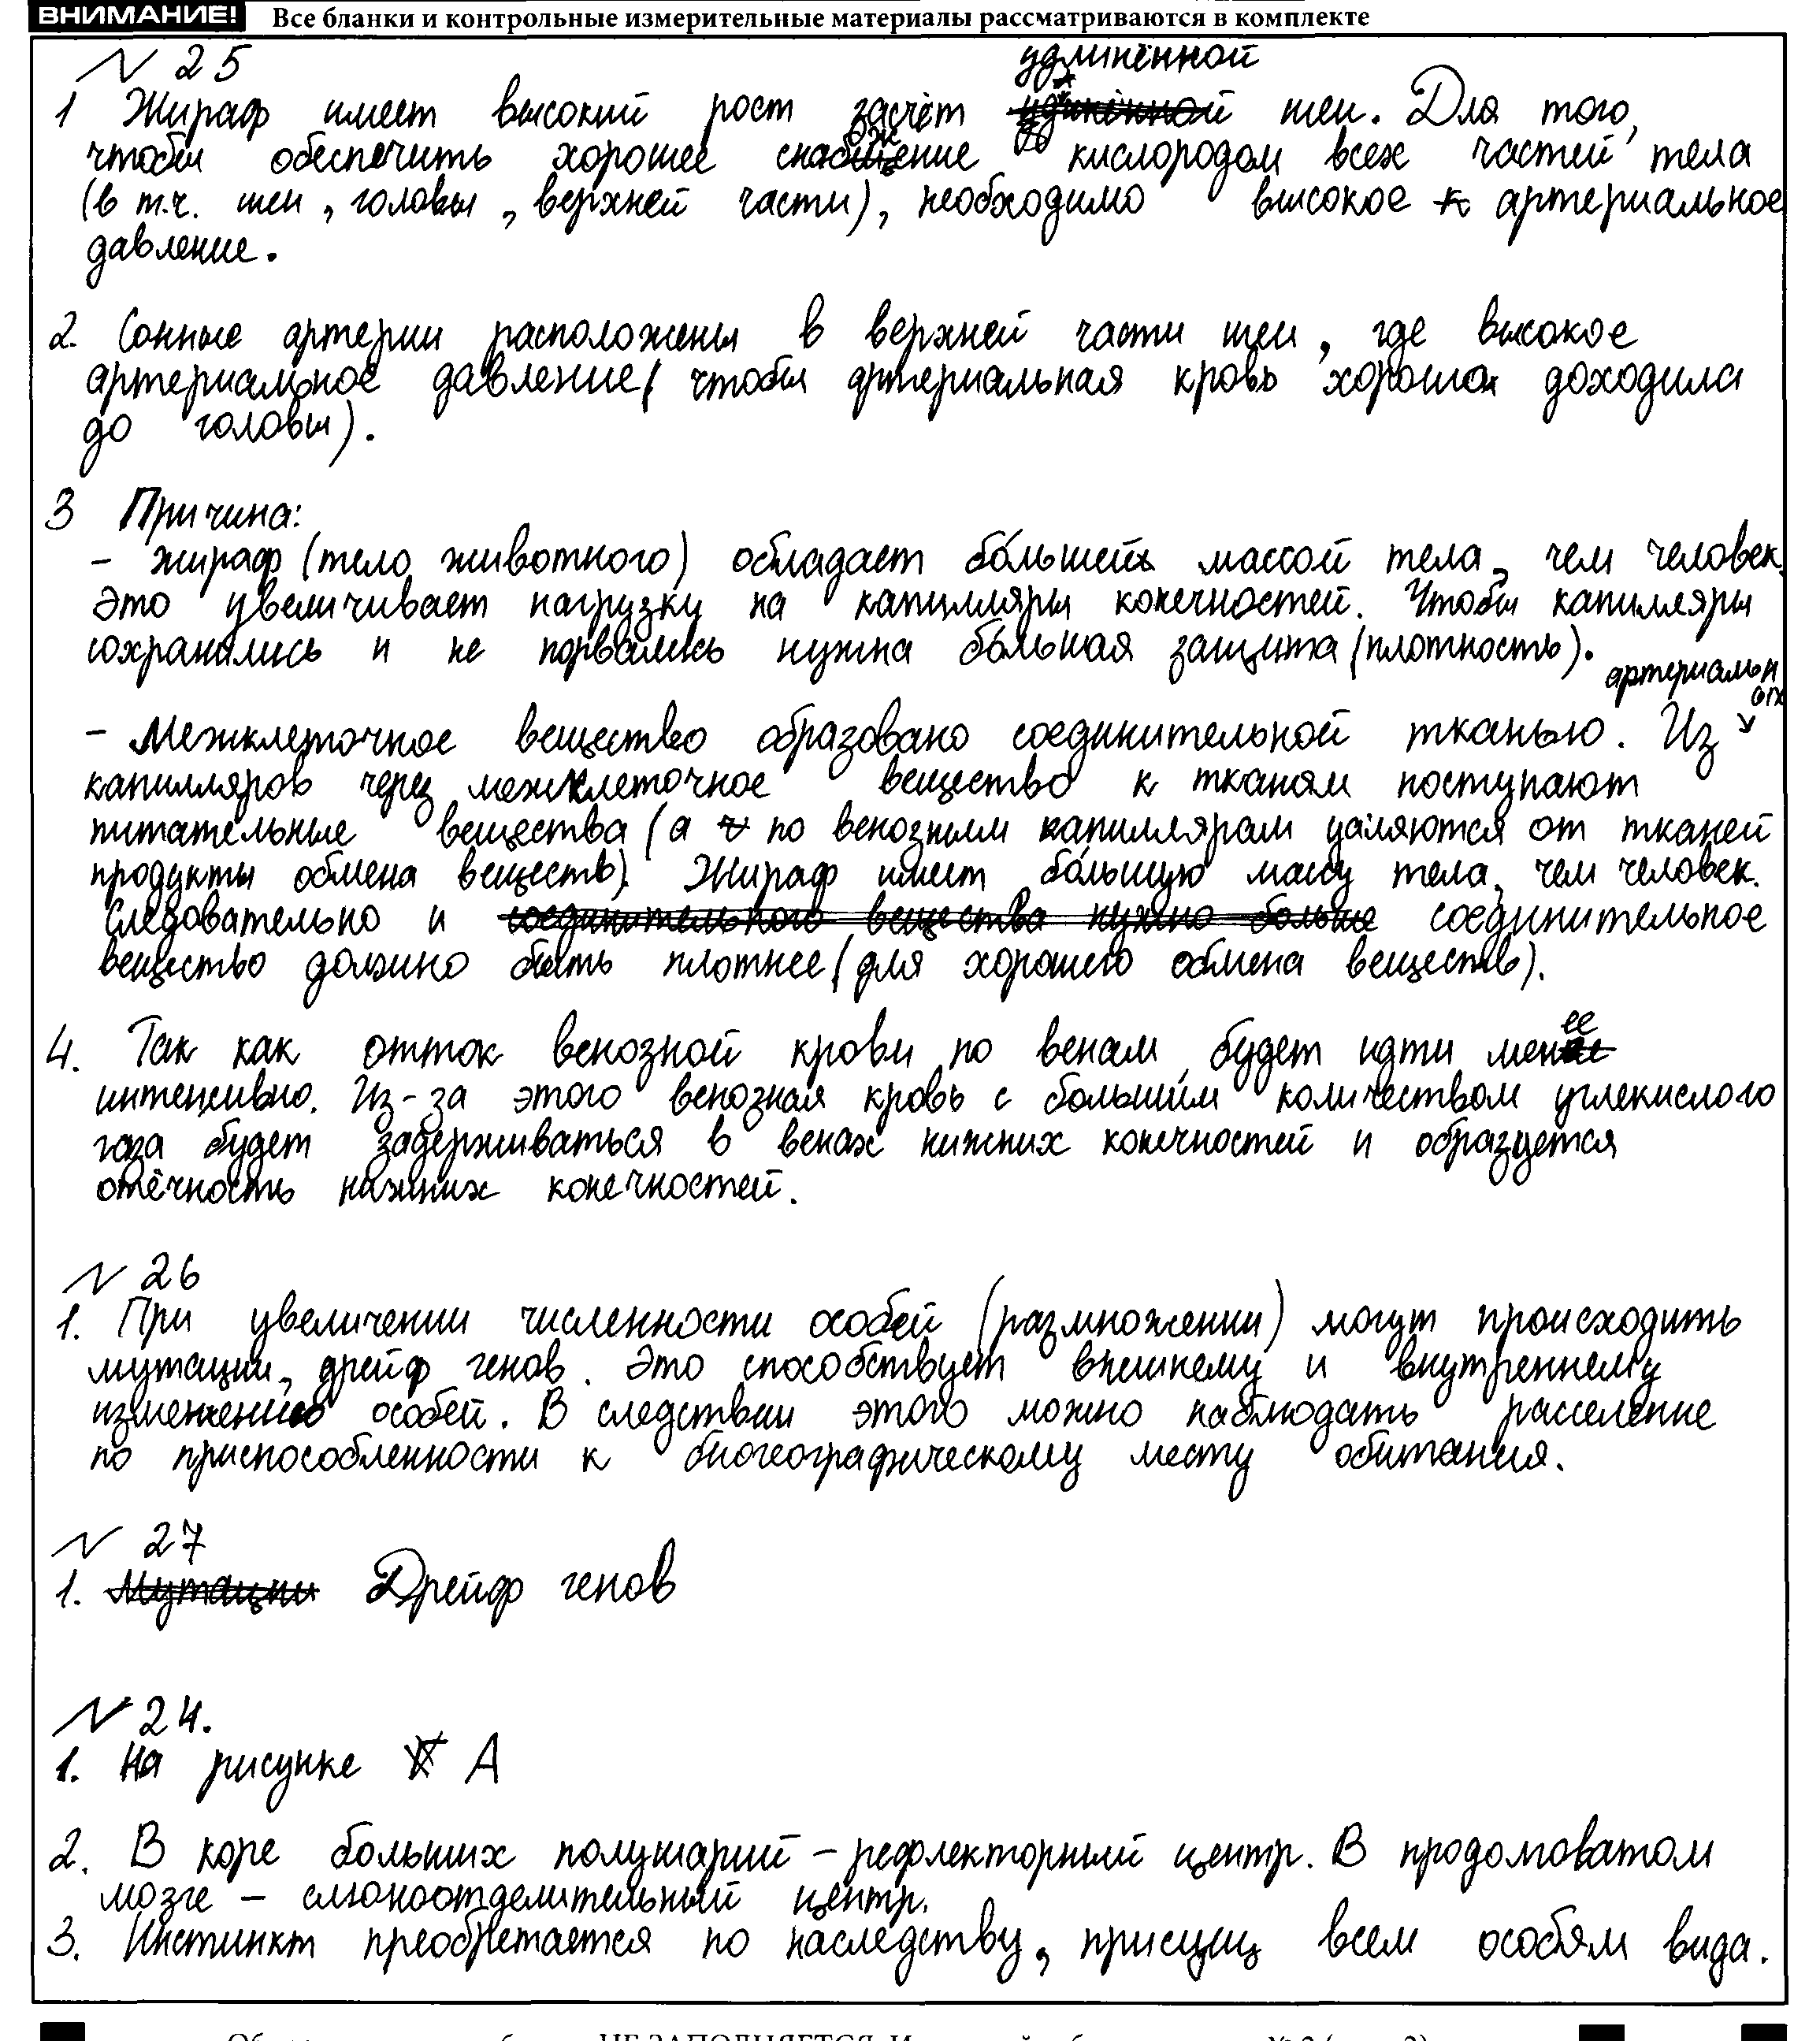 ВНИМАНИЕ! Все бланки и контрольные измерительные материалы рассматриваются в комплекте
N 25
удлинённой
1 Жираф имеет высокий рост засчёт шеи. Для того,
чтобы обеспечить хорошее снабжение кислородом всех частей тела
(в т.ч. шеи, головы, верхней части), необходимо высокое артериальное
давление.
2. Сонные артерии расположены в верхней части шеи, где высокое
артериальное давление (чтобы артериальная кровь хорошо доходила
до головы).
3 Причина:
- жираф (тело животного) обладает бо́льшей массой тела, чем человек.
Это увеличивает нагрузку на капилляры конечностей. Чтобы капилляры
сохранялись и не порвались нужна бо́льшая защита (плотность).
артериальн
ых
- Межклеточное вещество образовано соединительной тканью. Из
капилляров через межклеточное вещество к тканям поступают
питательные вещества (а по венозным капиллярам удаляются от тканей
продукты обмена веществ). Жираф имеет бо́льшую массу тела, чем человек.
Следовательно и соединительного вещества нужно больше соединительное
вещество должно быть плотнее (для хорошего обмена веществ).
4. Так как отток венозной крови по венам будет идти менее
интенсивно. Из-за этого венозная кровь с большим количеством углекислого
газа будет задерживаться в венах нижних конечностей и образуется
отёчность нижних конечностей.
N 26
1. При увеличении численности особей (размножении) могут происходить
мутации, дрейф генов. Это способствует внешнему и внутреннему
изменению особей. В следствии этого можно наблюдать расселение
по приспособленности к биогеографическому месту обитания.
N 27
1. Мутации Дрейф генов
N 24.
1. На рисунке А
2. В коре больших полушарий - рефлекторный центр. В продолговатом
мозге - слюноотделительный центр.
3. Инстинкт преобретается по наследству, присущ всем особям вида.